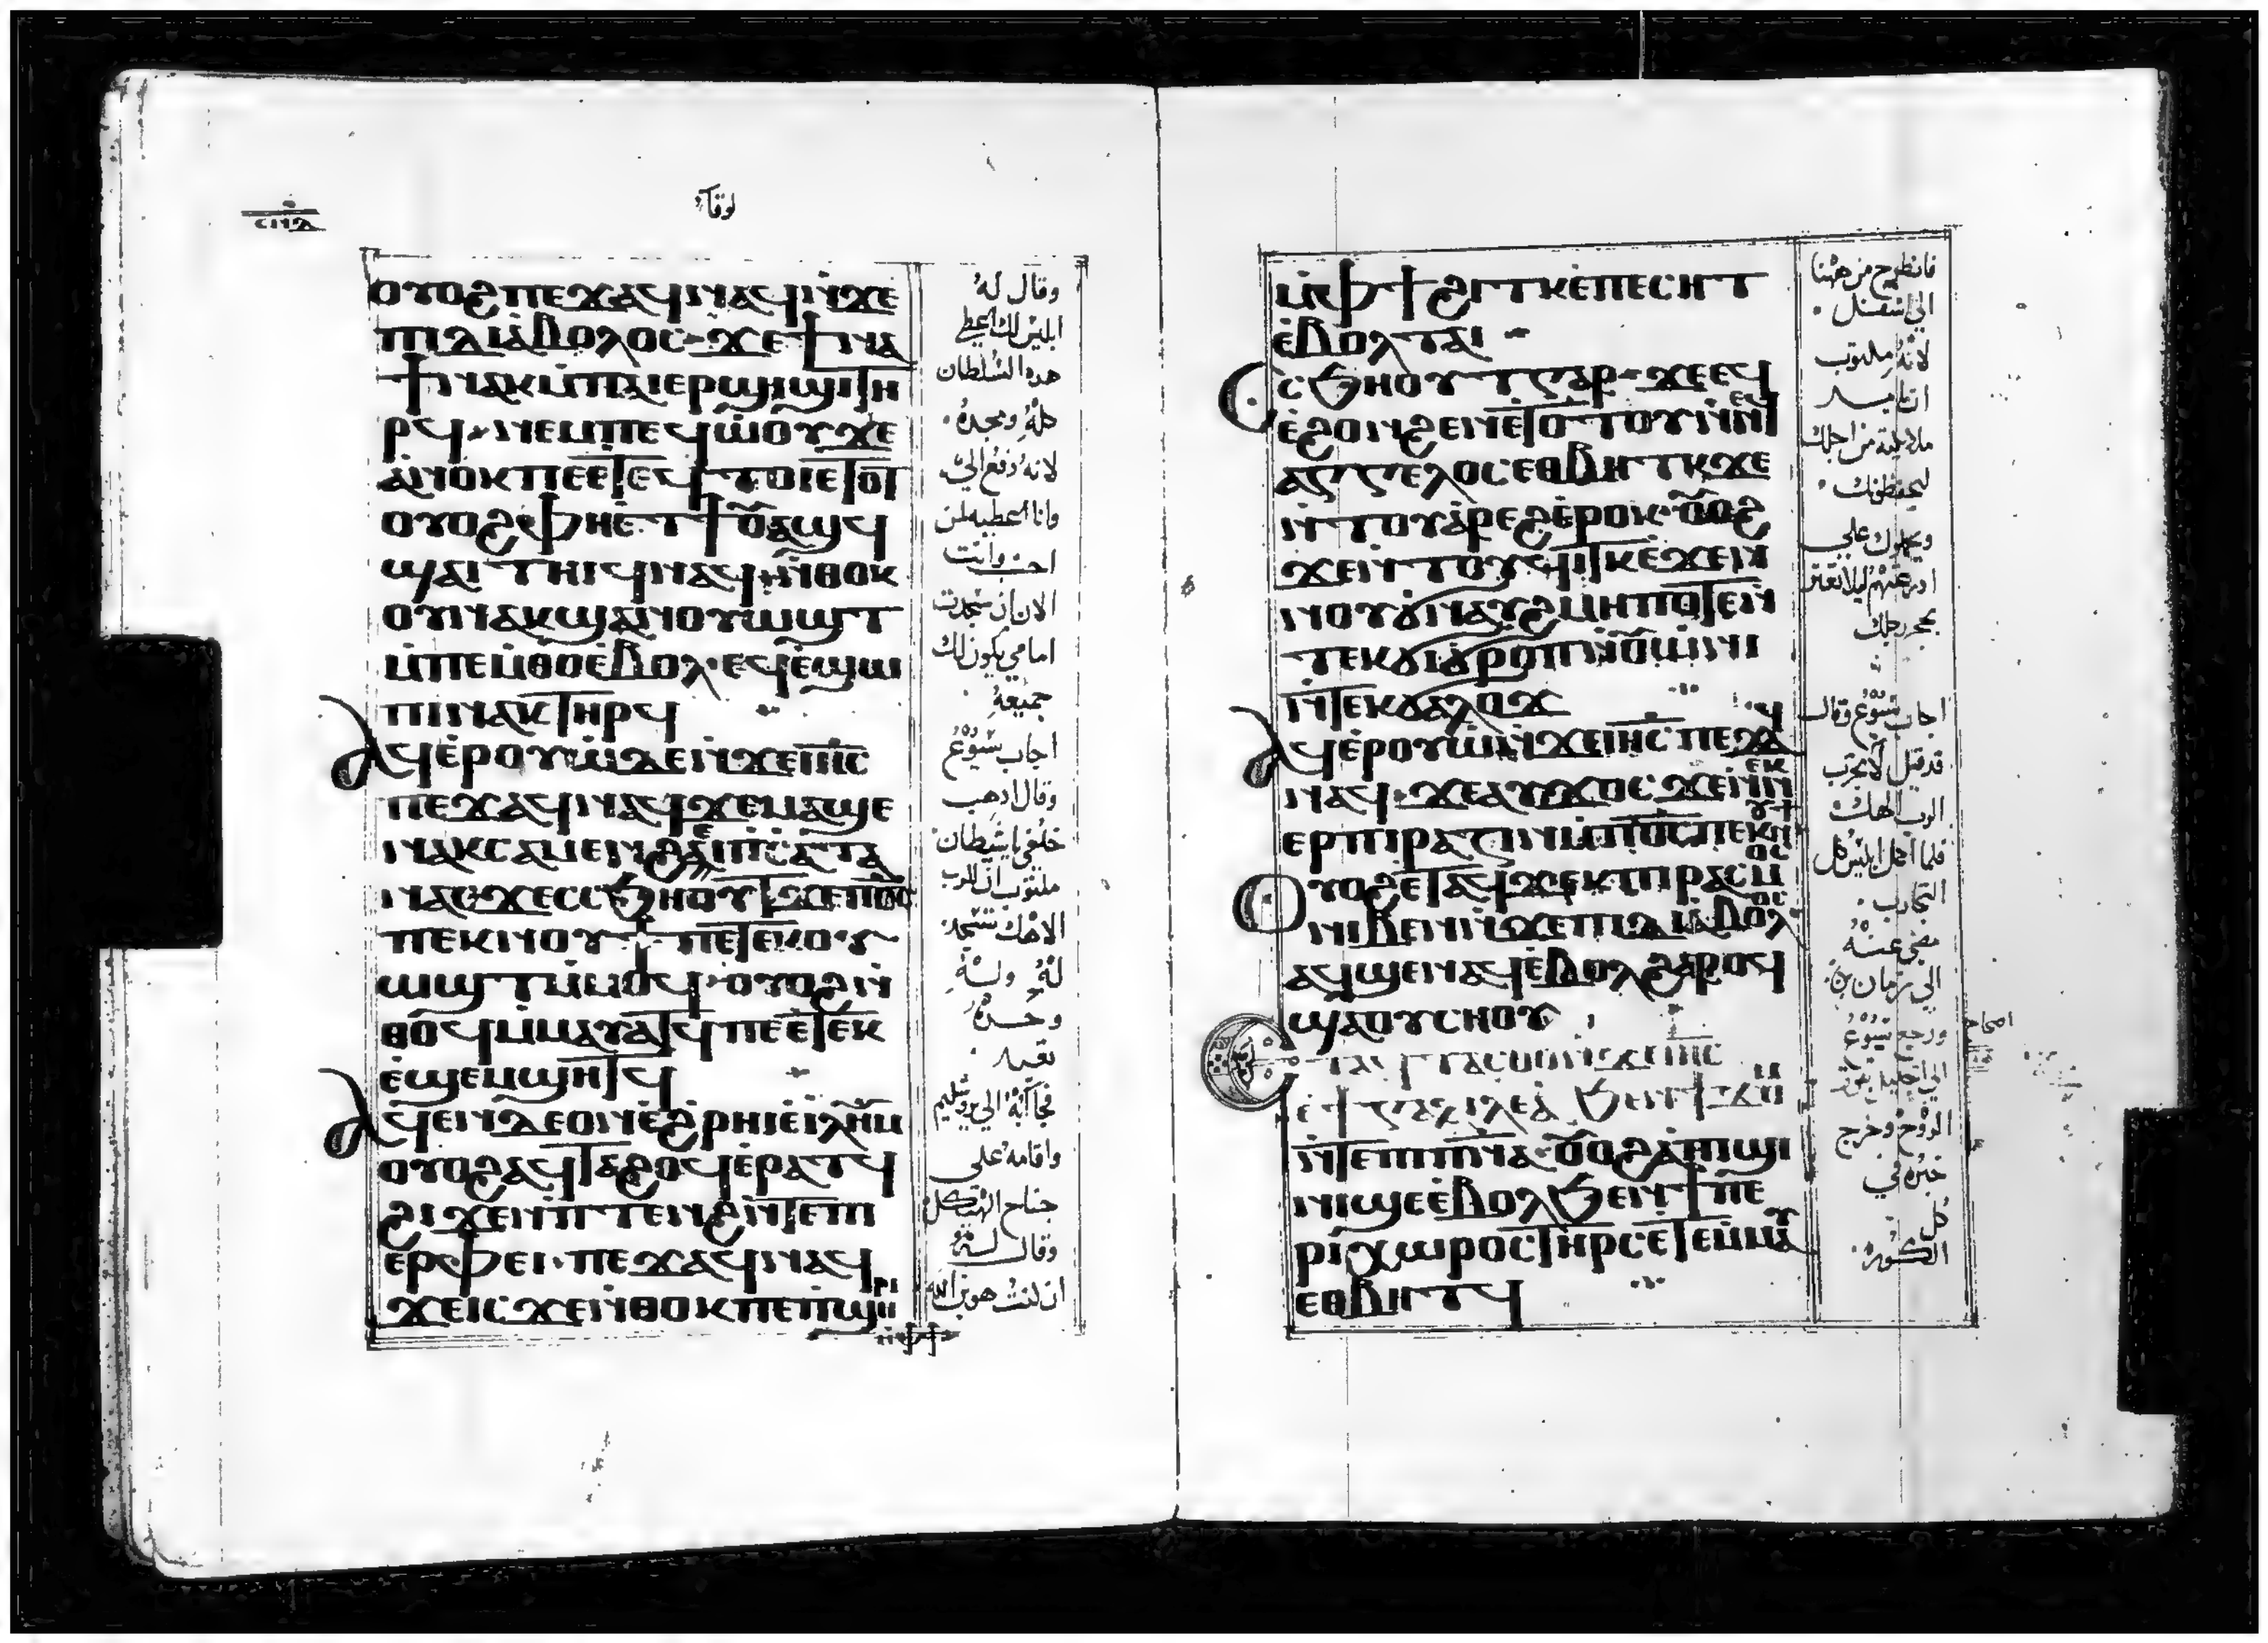 لوقا
ⲟⲩⲟϩ ⲡⲉϫⲁϥ ⲛⲁϥ ⲛ̇ϫⲉ
ⲡⲓⲇⲓⲁ̇ⲃⲟⲗⲟⲥ ϫⲉ ϯⲛⲁ
ϯ ⲛⲁⲕ ⲙ̇ⲡⲁⲓⲉⲣϣⲓϣⲓ ⲧⲏ
ⲣϥ ⲛⲉⲙ ⲡⲉϥⲱ̇ⲟⲩ ϫⲉ
ⲁ̇ⲛⲟⲕ ⲡⲉ ⲉⲧⲉϥ ⲧⲟⲓ ⲉⲧⲟⲧ
ⲟⲩⲟϩ ⲫⲏ ⲉ̇ϯⲟⲩⲁϣϥ
ϣⲁⲓⲧⲏⲓϥ ⲛⲁϥ ⲛ̇ⲑⲟⲕ
ⲟⲩⲛ ⲁⲕϣⲁⲛⲟⲩⲱϣⲧ
ⲙ̇ⲡⲉⲙ̇ⲑⲟ ⲉ̇ⲃⲟⲗ ⲉϥⲉ̇ϣⲱ
ⲡⲓ ⲛⲁⲕ ⲧⲏⲣϥ
ⲁϥⲉ̇ⲣⲟⲩⲱ̇ ⲇⲉ ⲛ̇ϫⲉ ⲓⲏⲥ
ⲡⲉϫⲁϥ ⲛⲁϥ ϫⲉ ⲙⲁϣⲉ
ⲛⲁⲕ ⲥⲁⲙⲉⲛϩⲏⲓ ⲡⲥⲁⲧⲁ
ⲛⲁⲥ ϫⲉ ⲥⲥϧⲏⲟⲩⲧ ϫⲉ ⲡⲟⲥ
ⲡⲉⲕⲛⲟⲩϯ ⲡⲉⲧⲉⲕⲟⲩ
ⲱϣⲧ ⲙ̇ⲙⲟϥ ⲟⲩⲟϩ ⲛ̇
ⲑⲟϥ ⲙ̇ⲙⲁⲩⲁⲧϥ ⲡⲉ ⲉⲧⲉⲕ
ⲉ̇ϣⲉⲙϣⲏⲧϥ
ⲁϥⲉⲛ ⲇⲉ ⲟⲛ ⲉ̇ϩⲣⲏⲓ ⲉ̇ⲓⲗⲏⲙ
ⲟⲩⲟϩ ⲁϥⲧⲁϩⲟϥ ⲉ̇ⲣⲁⲧϥ
ϩⲓϫⲉⲛ ⲡⲧⲉⲛϩ ⲛ̇ⲧⲉ ⲡ
ⲉⲣⲫⲉⲓ ⲡⲉϫⲁϥ ⲛⲁϥ
ϫⲉ ⲓⲥϫⲉ ⲛ̇ⲑⲟⲕ ⲡⲉ ⲡ̇ϣⲏⲣⲓ
وقال له
ابليس لك اعطي
هذه السلطان
كله ومجده
لانه دفع الي
وانا اعطيه لمن
احب وانت
الان ان سجدت
امامي يكون لك
جميعه
اجاب يسوع
وقال اذهب
خلفي يا شيطان
مكتوب ان للرب
الاهك تسجد
له وله
وحده
تعبد
فجا به الي يروشليم
واقامه علي
جناح الهيكل
وقال له
ان كنت هو بن الله
ⲙ̇ⲫϯ ϩⲓⲧⲕ ⲉ̇ⲡⲉⲥⲏⲧ
ⲉ̇ⲃⲟⲗ ⲧⲁⲓ
ⲥⲥϧⲏⲟⲩⲧ ⲅⲁⲣ ϫⲉ ⲉϥ
ⲉ̇ϩⲟⲛϩⲉⲛ ⲉ̇ⲧⲟⲧⲟⲩ ⲛ̇ⲛⲉϥ
ⲁⲅⲅⲉⲗⲟⲥ ⲉⲑⲃⲏⲧⲕ ϫⲉ
ⲛ̇ⲧⲟⲩⲁ̇ⲣⲉϩ ⲉ̇ⲣⲟⲕ ⲟⲩⲟϩ
ϫⲉ ⲛ̇ⲧⲟⲩϥⲓⲧⲕ ⲉ̇ϫⲉⲛ
ⲛⲟⲩϭⲛⲁⲩϩ ⲙⲏⲡⲟⲧⲉ ⲛ
ⲧⲉⲕϭⲓϭⲣⲟⲡ ⲛ̇ⲟⲩⲱ̇ⲛⲓ
ⲛ̇ⲧⲉⲕϭⲁⲗⲟϫ
ⲁϥⲉ̇ⲣⲟⲩⲱ̇ ⲛ̇ϫⲉ ⲓⲏⲥ ⲡⲉϫⲁϥ
ⲛⲁϥ ϫⲉ ⲁⲩϫⲟⲥ ϫⲉ ⲛ̇ⲛⲉⲕ
ⲉⲣⲡⲓⲣⲁⲍⲓⲛ ⲙ̇ⲡⲟⲥ ⲡⲉⲕⲛⲟⲩϯ
ⲟⲩⲟϩ ⲉ̇ⲧⲁϥϫⲉⲕ ⲡⲓⲣⲁⲥⲙⲟⲥ
ⲛⲓⲃⲉⲛ ⲛ̇ϫⲉ ⲡⲓⲇⲓⲁ̇ⲃⲟⲗⲟⲥ
ⲁϥϣⲉⲛⲁϥ ⲉ̇ⲃⲟⲗ ϩⲁⲣⲟϥ
ϣⲁⲟⲩⲥⲏⲟⲩ
ⲧⲁⲥⲑⲟ ⲛ̇ϫⲉ ⲓⲏⲥ
ⲉ̇ϯⲅⲁⲗⲓⲗⲉⲁ̇ ϧⲉⲛ ϯϫⲟⲙ
ⲛ̇ⲧⲉ ⲡⲓⲡⲛⲁ ⲟⲩⲟϩ ⲁ̇ⲡⲓⲥⲱⲓ
ⲛⲓ ϣⲉ ⲉ̇ⲃⲟⲗ ϧⲉⲛ ϯⲡⲉ
ⲣⲓⲭⲱⲣⲟⲥ ⲧⲏⲣⲥ ⲉ̇ⲧⲉⲙ̇ⲙⲁⲩ
ⲉⲑⲃⲏⲧϥ
فانطرح من ههنا
الي اسفل
لانه مكتوب
ان يامر
ملايكته من اجلك
ليحفظوك
ويحملوك علي
اذرعتهم ليلا تعثر
بحجر رجلك
اجاب يسوع وقال
قد قيل لا تجرب
الرب الهك
فلما اكمل ابليس كل
التجارب
مضي عنه
الي زمان
ورجع يسوع
الي الجليل بقوة
الروح وخرج
خبره في
كل
الكورة
اصحاح